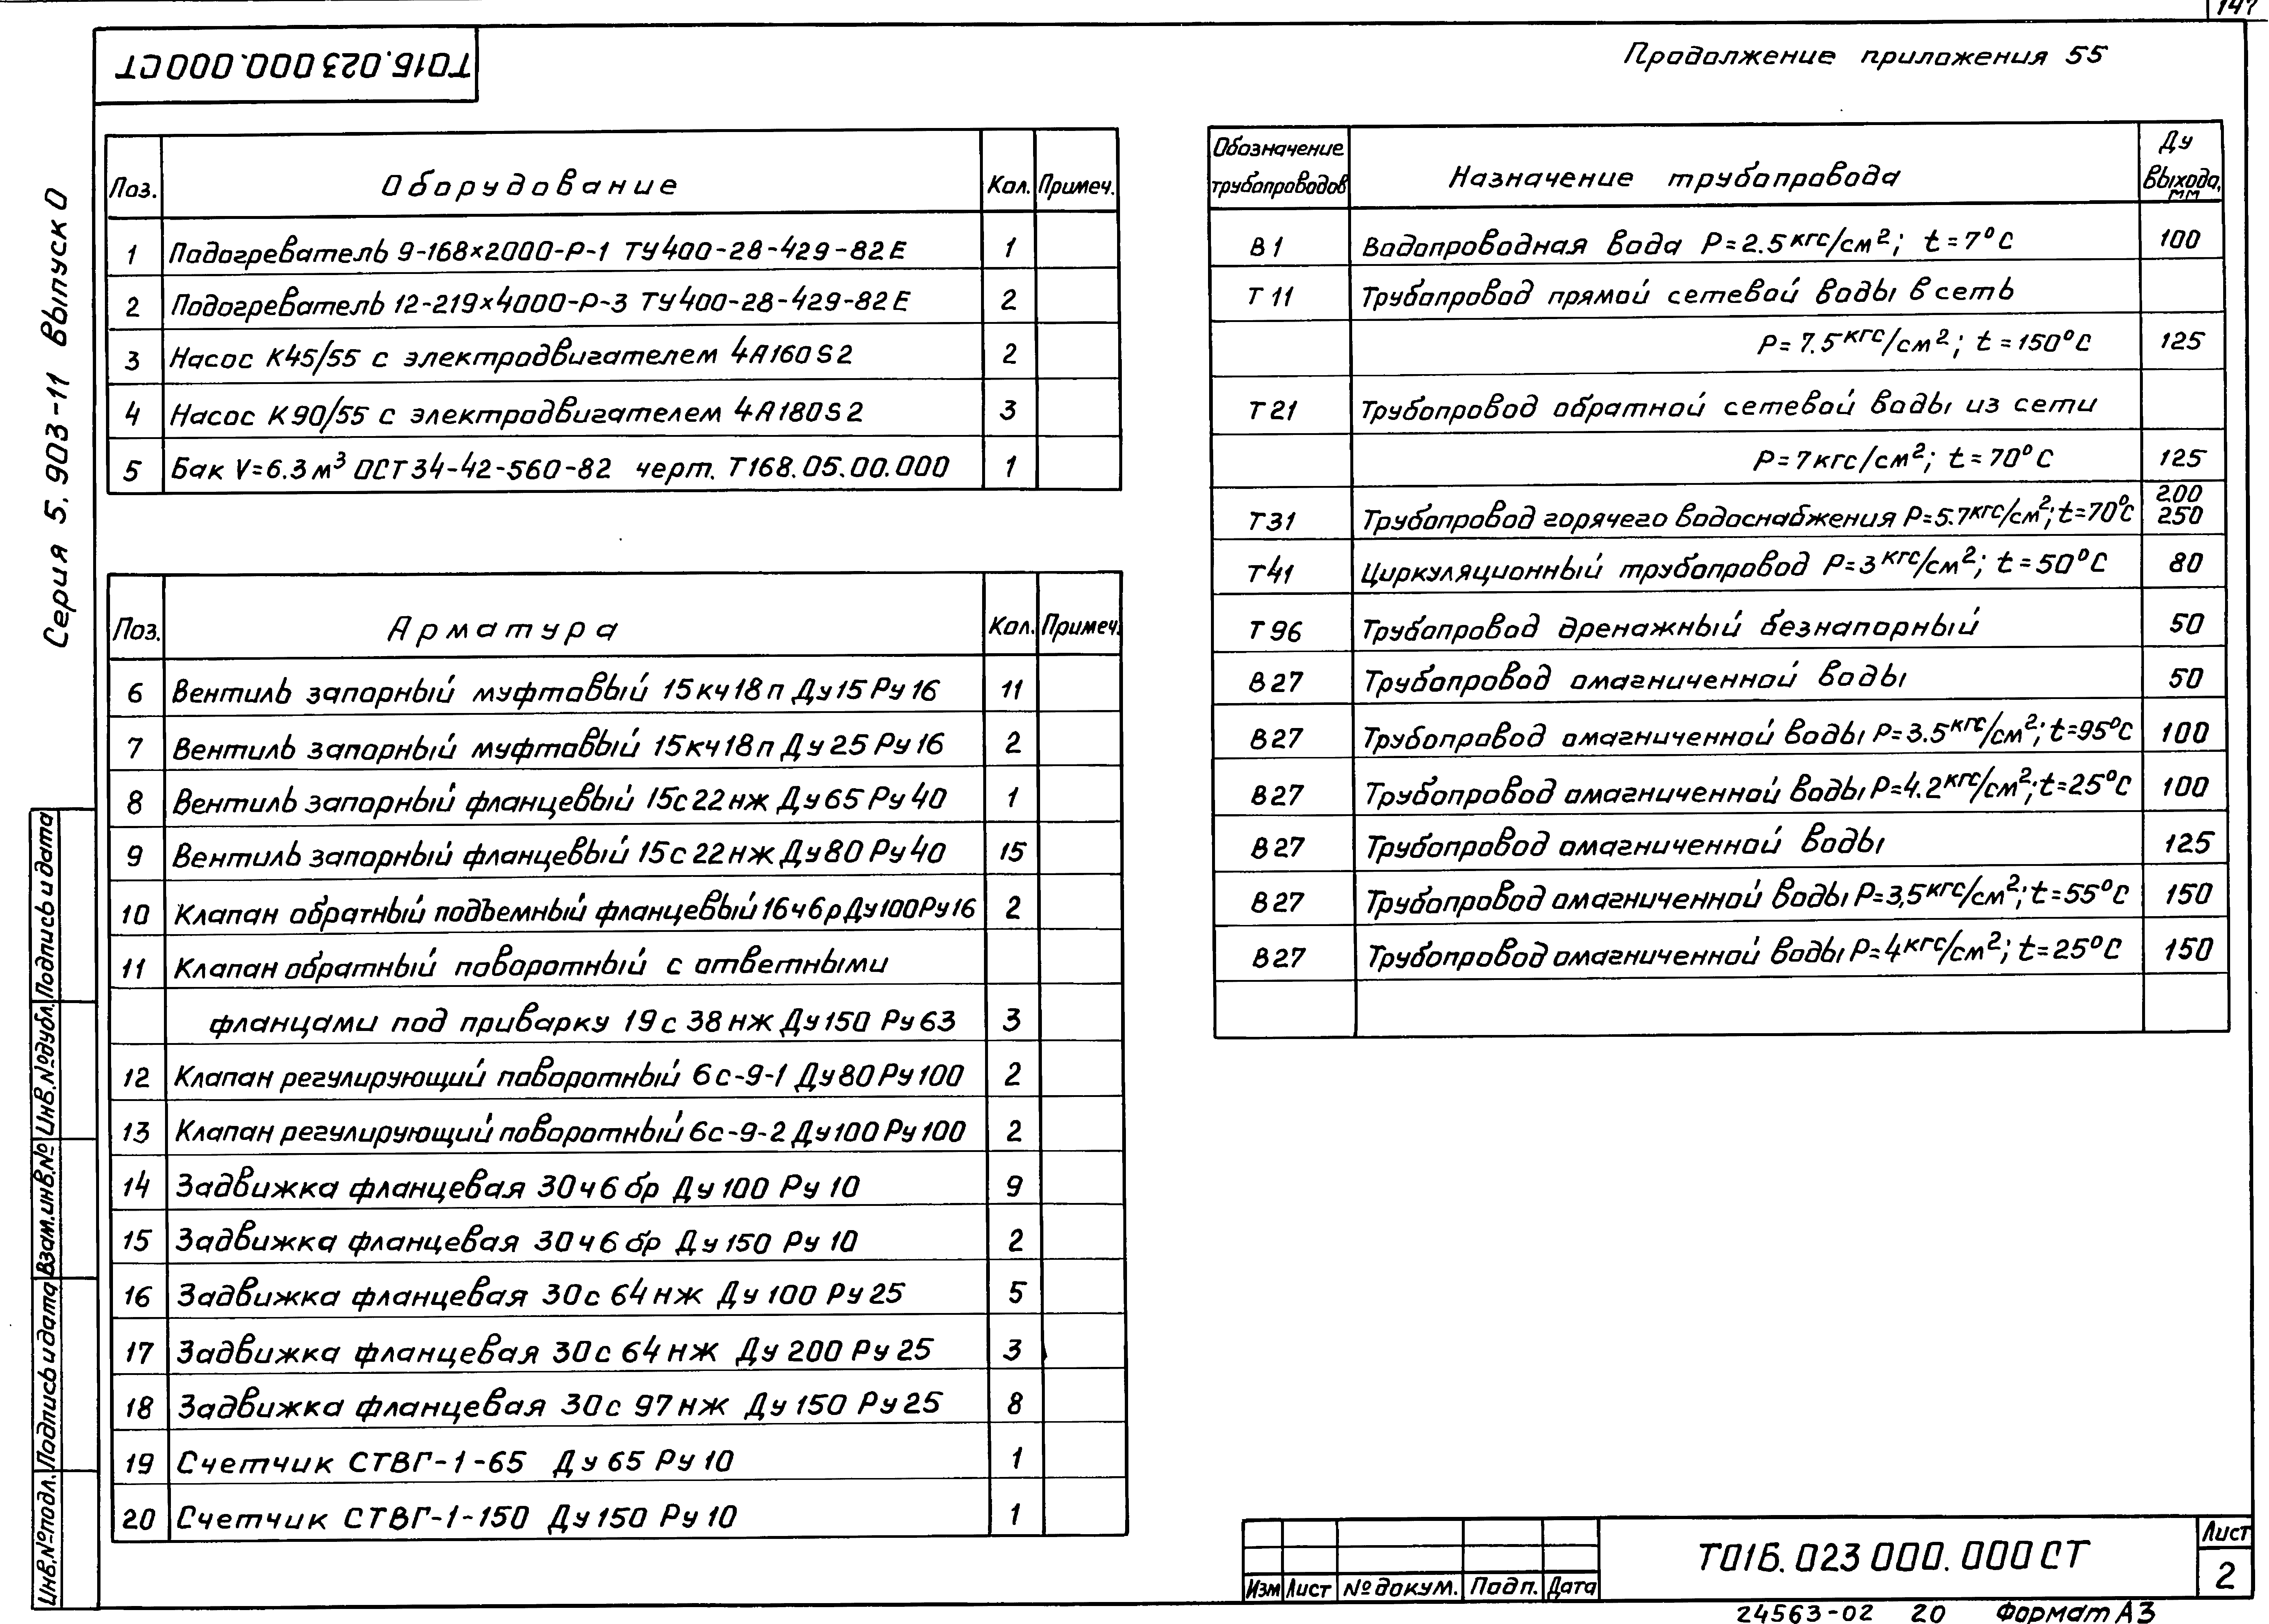 147
Т01Б.023 000.000 СТ
Продолжение приложения 55
Серия 5.903-11 Выпуск 0
Поз. Оборудование Кол. Примеч.
1 Подогреватель 9-168×2000-Р-1 ТУ 400-28-429-82Е 1
2 Подогреватель 12-219×4000-Р-3 ТУ 400-28-429-82Е 2
3 Насос К45/55 с электродвигателем 4А160S2 2
4 Насос К90/55 с электродвигателем 4А180S2 3
5 Бак V=6.3м³ ОСТ 34-42-560-82 черт. Т168.05.00.000 1
Поз. Арматура Кол. Примеч.
6 Вентиль запорный муфтовый 15кч18п Ду15 Ру16 11
7 Вентиль запорный муфтовый 15кч18п Ду25 Ру16 2
8 Вентиль запорный фланцевый 15с22нж Ду65 Ру40 1
9 Вентиль запорный фланцевый 15с22нж Ду80 Ру40 15
10 Клапан обратный подъемный фланцевый 16ч6р Ду100 Ру16 2
11 Клапан обратный поворотный с ответными
фланцами под приварку 19с38нж Ду150 Ру63 3
12 Клапан регулирующий поворотный 6с-9-1 Ду80 Ру100 2
13 Клапан регулирующий поворотный 6с-9-2 Ду100 Ру100 2
14 Задвижка фланцевая 30ч6бр Ду100 Ру10 9
15 Задвижка фланцевая 30ч6бр Ду150 Ру10 2
16 Задвижка фланцевая 30с64нж Ду100 Ру25 5
17 Задвижка фланцевая 30с64нж Ду200 Ру25 3
18 Задвижка фланцевая 30с97нж Ду150 Ру25 8
19 Счетчик СТВГ-1-65 Ду65 Ру10 1
20 Счетчик СТВГ-1-150 Ду150 Ру10 1
Обозначение трубопроводов Назначение трубопровода Ду выхода, мм
В1 Водопроводная вода Р=2.5кгс/см²; t=7°С 100
Т11 Трубопровод прямой сетевой воды в сеть
Р=7.5кгс/см²; t=150°С 125
Т21 Трубопровод обратной сетевой воды из сети
Р=7кгс/см²; t=70°С 125
Т31 Трубопровод горячего водоснабжения Р=5.7кгс/см²; t=70°С 200 250
Т41 Циркуляционный трубопровод Р=3кгс/см²; t=50°С 80
Т96 Трубопровод дренажный безнапорный 50
В27 Трубопровод омагниченной воды 50
В27 Трубопровод омагниченной воды Р=3.5кгс/см²; t=95°С 100
В27 Трубопровод омагниченной воды Р=4.2кгс/см²; t=25°С 100
В27 Трубопровод омагниченной воды 125
В27 Трубопровод омагниченной воды Р=3,5кгс/см²; t=55°С 150
В27 Трубопровод омагниченной воды Р=4кгс/см²; t=25°С 150
Подпись и дата
Инв.№дубл.
Взам.инв.№
Подпись и дата
Инв.№подл.
Изм Лист №докум. Подп. Дата
Т01Б.023 000.000СТ
Лист
2
24563-02 20 Формат А3